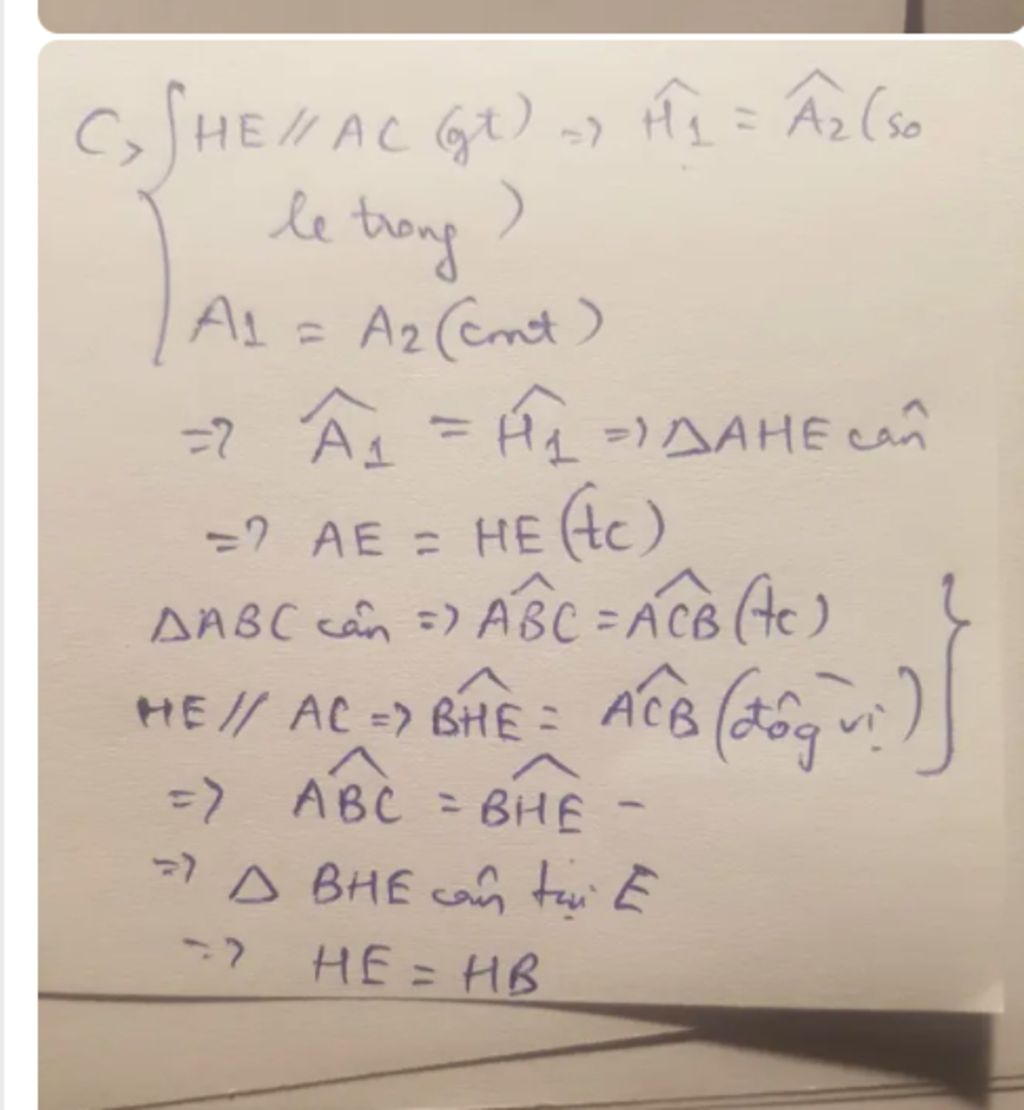 C, HE // AC (gt) => Ĥ1 = Â2 (so
le trong)
A1 = A2 (cmt)
=> Â1 = Ĥ1 => ΔAHE cân
=> AE = HE (tc)
ΔABC cân => AB̂C = AĈB (tc)
HE // AC => BĤE = AĈB (đôg vị)
=> AB̂C = BĤE -
=> Δ BHE cân tại E
=> HE = HB